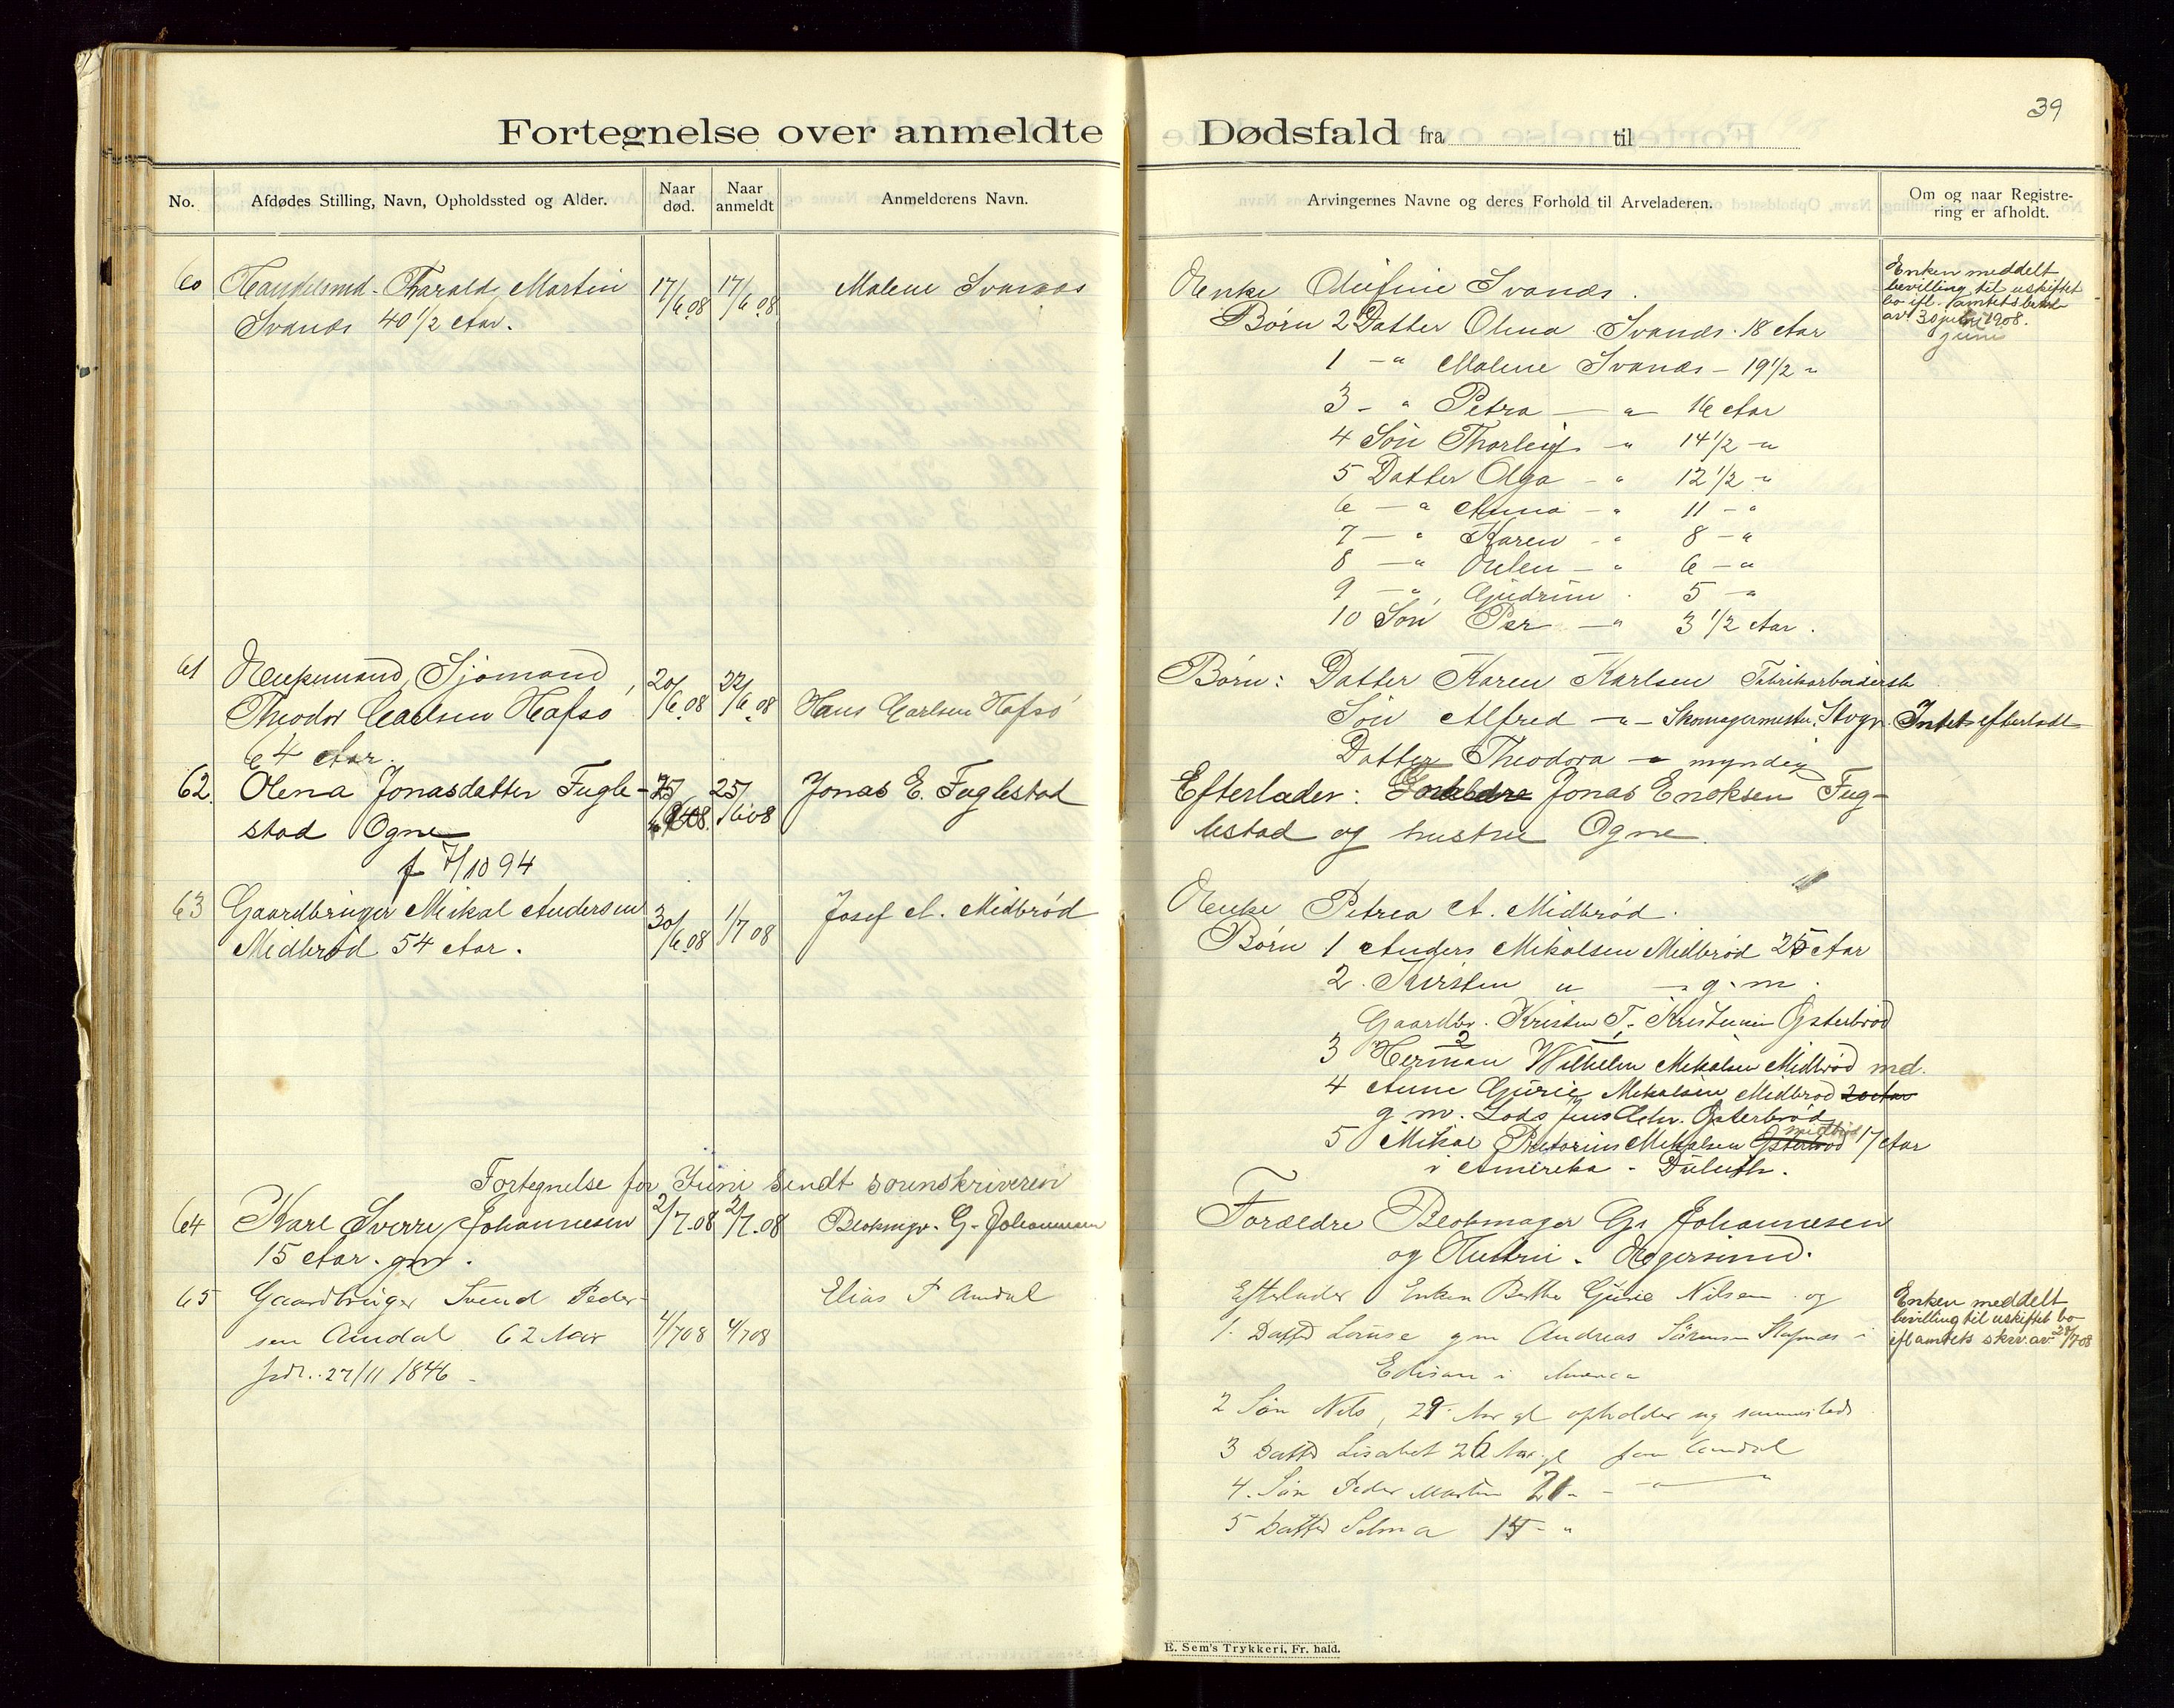 39
Fortegnelse over anmeldte Dødsfald fra til
No.
Afdødes Stilling, Navn, Opholdssted og Alder.
Naar død.
Naar anmeldt
Anmelderens Navn.
Arvingernes Navne og deres Forhold til Arveladeren.
Om og naar Registrering er afholdt.
60 Handelsmd. Tharald Martin 17/6 08 17/6 08 Malene Svanæs
Svanæs 40 1/2 Aar.
Enke Svanæs.
Børn 2 Datter Olina Svanæs 18 Aar
1 -"- Malene Svanæs - 19 1/2 "
3 - " Petra - " - 16 Aar
4 Søn Thorleif - " 14 1/2 - "
5 Datter Olga - " 12 1/2 - "
6 - " Anna - " 11 - "
7 - " Karen - " 8 - "
8 - " - " 6 - "
9 - " Gudrun . 5 - "
10 Søn Per - " 3 1/2 Aar.
Enken meddelt
bevilling til uskiftet
bo ifl. amtets
av 30 juli 1908.
juni
61 Enkemand, Sjømand, 20/6 08 22/6 08
Theodor Carlsen Hafsø Hans Carlsen Hafsø
64 Aar.
Børn: Datter Karen Karlsen Fabrikarbeiderske
Søn Alfred - " - Skomagermester, Intet efterladt
Datter Theodora - " myndig
62. Olena Jonasdatter Fugle- 25/6 08 Jonas E. Fuglestad
stad Ogne
f 7/10 94
Efterlader: Forældre Jonas Enoksen Fug-
lestad og hustru Ogne.
63 Gaardbruger Mikal Andersen 30/6 08 1/7 08 Josef A. Midbrød
Midbrød 54 Aar.
Enke Petrea A. Midbrød.
Børn 1 Anders Mikalsen Midbrød 25 Aar
2. Kirsten " - g. m.
Gaardbr. Kristen T. Kristensen Østerbrød
3 Herman Wilhelm Mikalsen Midbrød md.
4 Anne Gurie Mikalsen Midbrød 20 Aar
g. m. Lods Jens Østerbrød
5 Mikal Pretorius Mikalsen Østerbrød Midbrød 17 Aar
i Amerika - Duluth.
Fortegnelse for Juni sendt sorenskriveren
64 Karl Sverre Johannesen 2/7.08 2/7.08 G. Johannesen
15 Aar. gm.
Forældre Blokmager G. Johannesen
og Hustru. Egersund.
65 Gaardbruger Svend Peder- Elias P Amdal
sen Amdal 62 Aar 4/7 08 4/7 08
født. 27/11 1846
Efterlader Enken Berthe Gurie Nilsen og
1. Datter Louise gm Andreas Sørensen i
Edison i
2 Søn Nils, 29 Aar gl opholder sig sammesteds
3 Datter Lisabet 26 Aar gl paa Amdal
4. Søn Peder Martin 21 - "
5 Datter Selma 15 - "
Enken meddelt
bevilling til uskiftet bo
ifl amtets skriv. av 28/7 08
E. Sem's Trykkeri, Fr. hald.